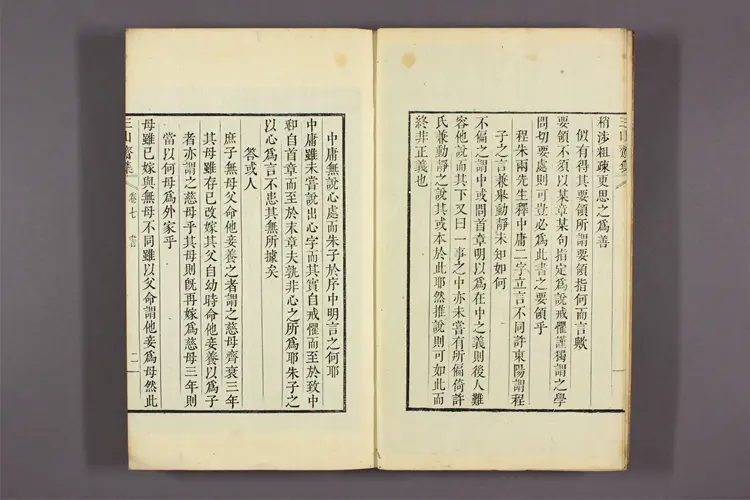 稍涉粗疎更思之爲善
似有得其要領所謂要領指何而言歟
要領不須以某章某句指定爲說戒懼謹獨謂之學
問切要處則可豈必爲此書之要領乎
程朱兩先生釋中庸二字立言不同許東陽謂程
子之言兼舉動靜未知如何
不偏之謂中或問首章明以爲在中之義則後人難
容他說而其下又曰一事之中亦未嘗有所偏倚許
氏兼動靜之說其或本於此耶然推說則可如此而
終非正義也
中庸無說心處而朱子於序中明言之何耶
中庸雖未嘗說出心字而其實自戒懼而至於致中
和自首章而至於末章夫孰非心之所爲耶朱子之
以心爲言不患其無所據矣
答或人
庶子無母父命他妾養之者謂之慈母齊衰三年
其母雖存已改嫁其父自幼時命他妾養以爲子
者亦謂之慈母乎其母則旣再嫁爲慈母三年則
當以何母爲外家乎
母雖已嫁與無母不同雖以父命謂他妾爲母然此
三山齋集
卷七
書
二